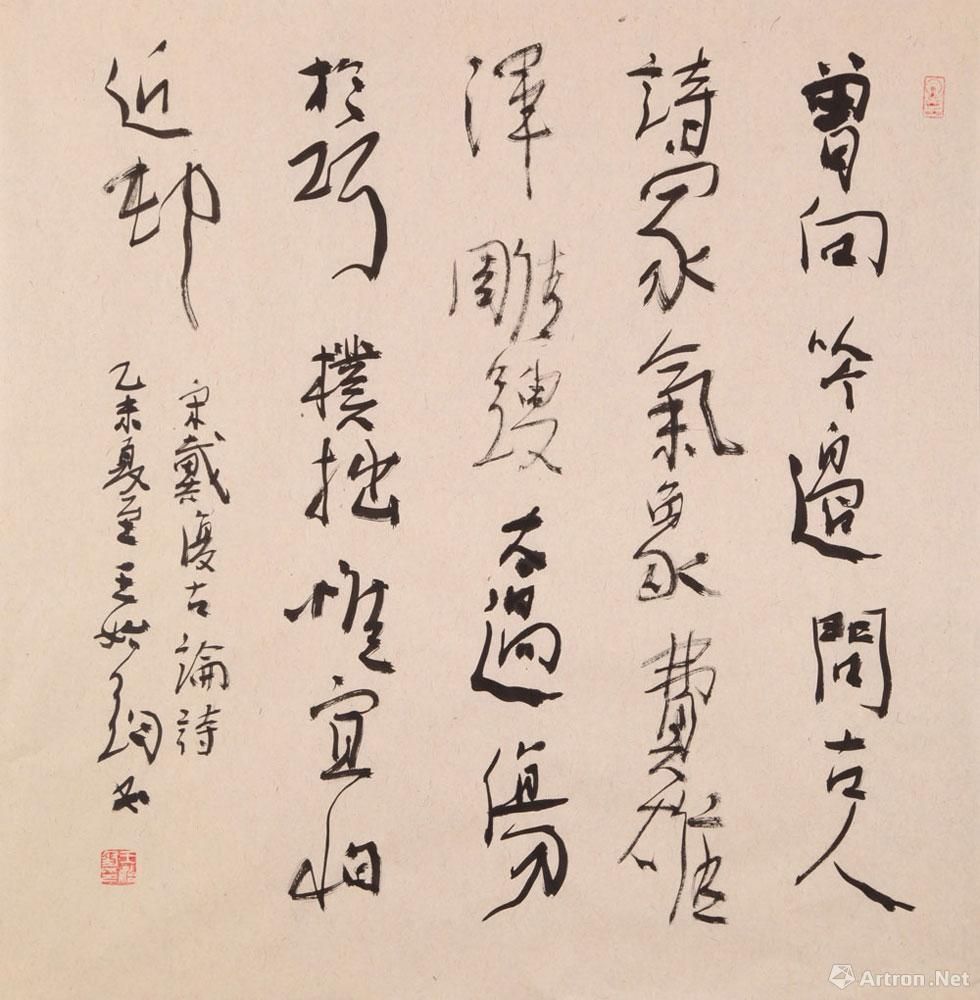 曾向吟邊問古人
詩家氣象費雄
渾雕鎪太過傷
於巧樸拙惟宜怕
近邨
宋戴復古論詩
乙未夏至王始鈞书
Artron.Net